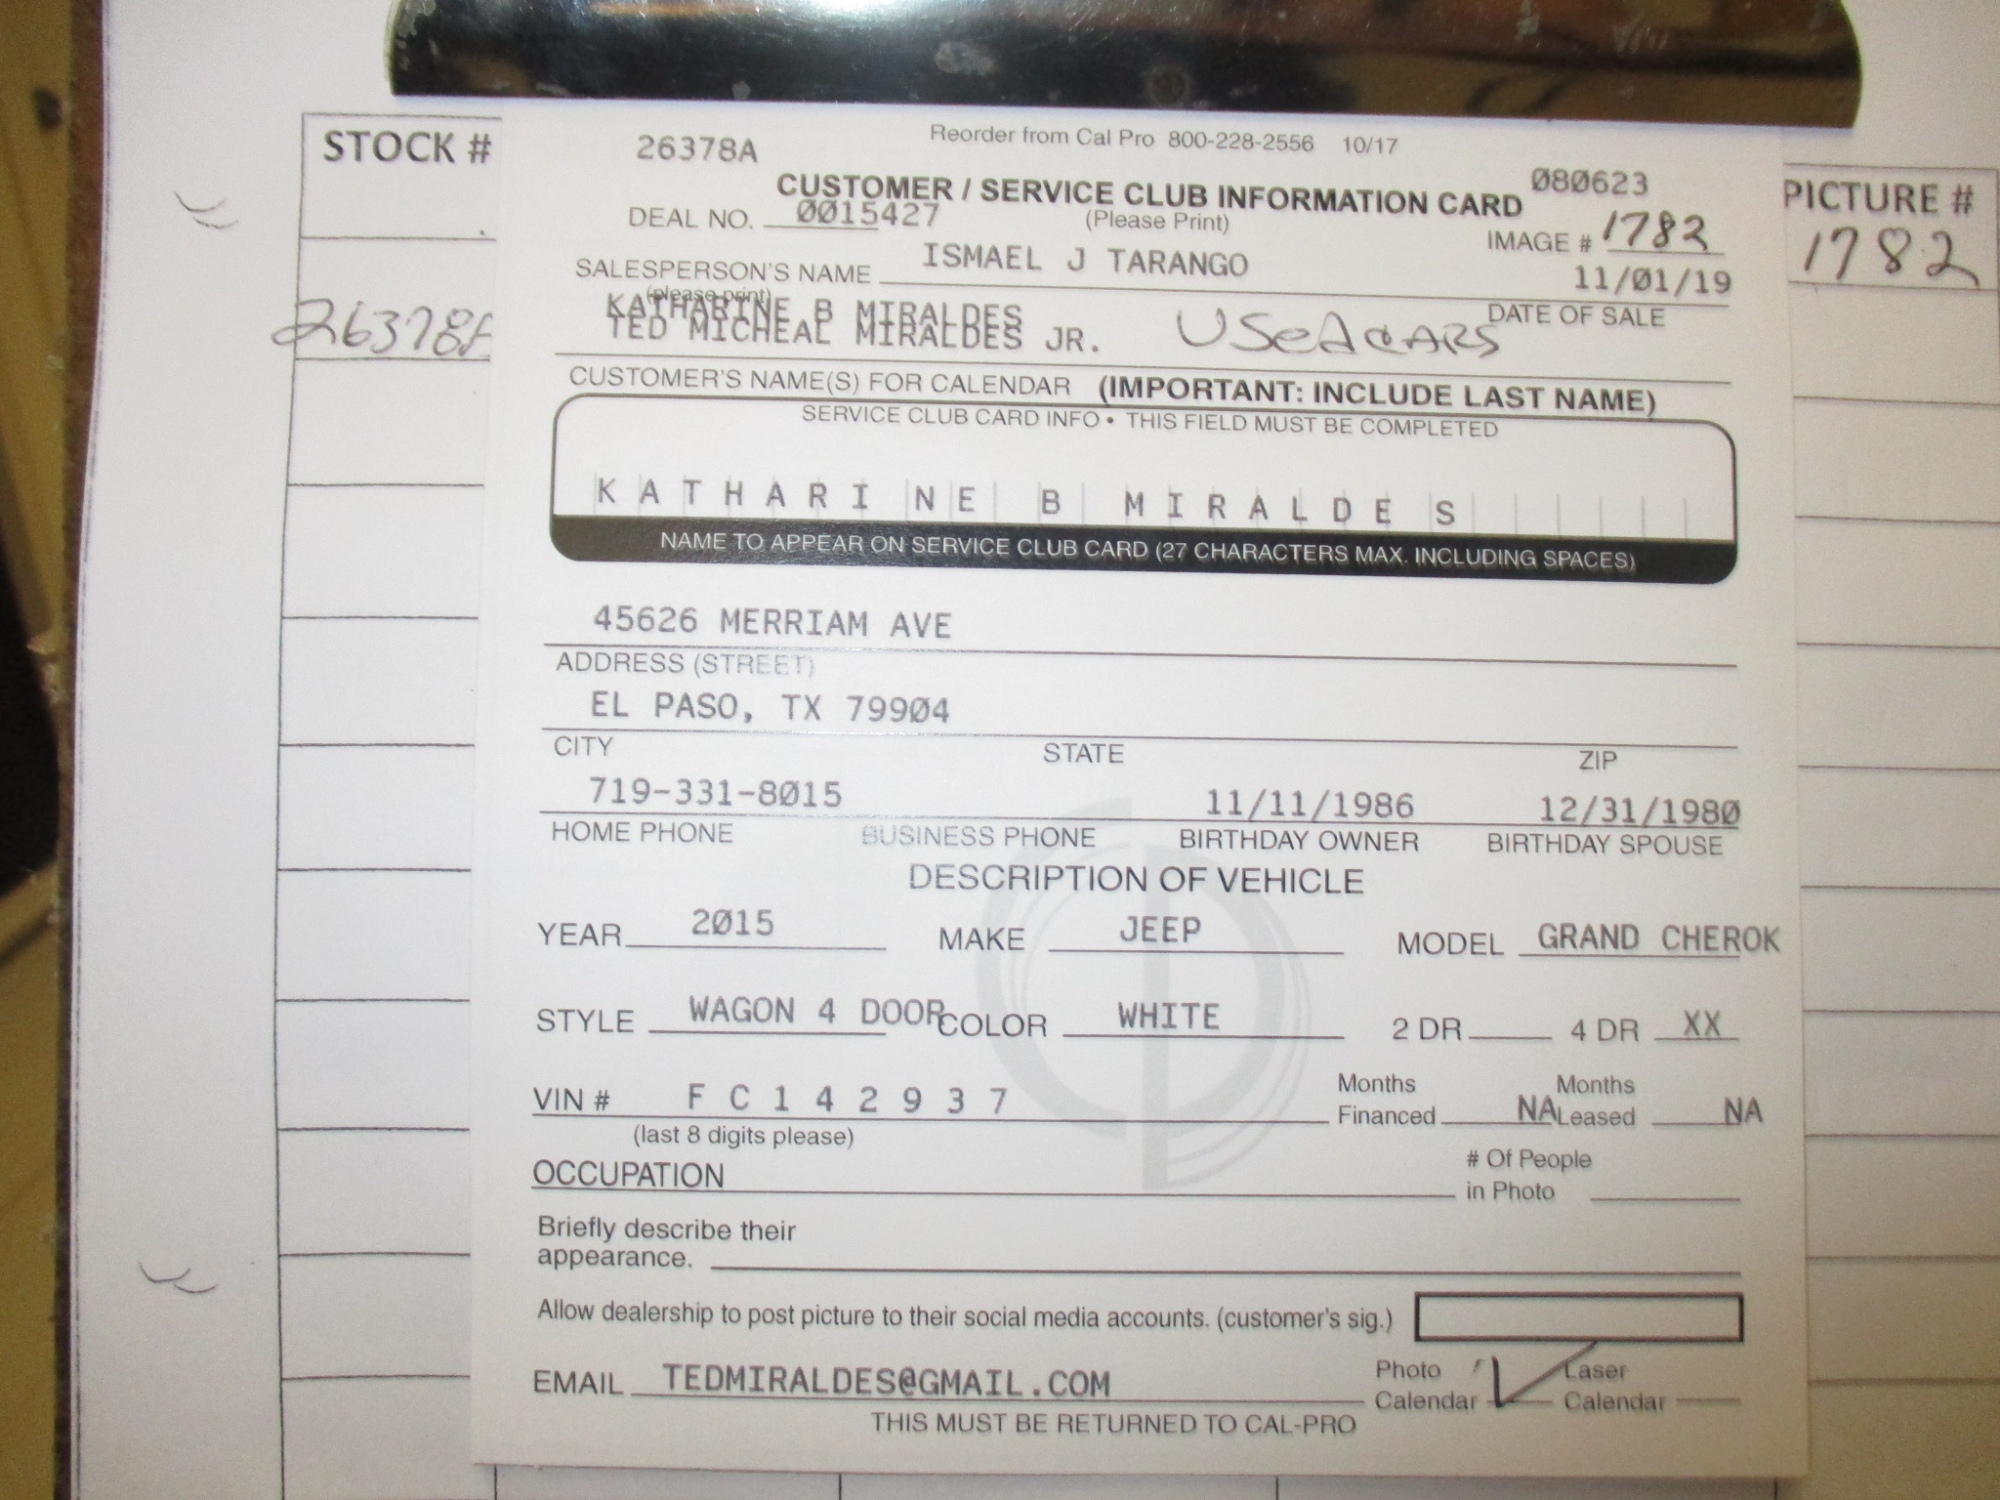 STOCK #
26378A
Reorder from Cal Pro 800-228-2556 10/17
080623
CUSTOMER / SERVICE CLUB INFORMATION CARD
(Please Print)
DEAL NO. 0015427
IMAGE # 1782
PICTURE #
1782
SALESPERSON'S NAME ISMAEL J TARANGO
(please print)
11/01/19
DATE OF SALE
26378A
KATHARINE B MIRALDES
TED MICHEAL MIRALDES JR.
USed CARS
CUSTOMER'S NAME(S) FOR CALENDAR (IMPORTANT: INCLUDE LAST NAME)
SERVICE CLUB CARD INFO • THIS FIELD MUST BE COMPLETED
KATHARINE B MIRALDES
NAME TO APPEAR ON SERVICE CLUB CARD (27 CHARACTERS MAX. INCLUDING SPACES)
45626 MERRIAM AVE
ADDRESS (STREET)
EL PASO, TX 79904
CITY STATE ZIP
719-331-8015 11/11/1986 12/31/1980
HOME PHONE BUSINESS PHONE BIRTHDAY OWNER BIRTHDAY SPOUSE
DESCRIPTION OF VEHICLE
YEAR 2015 MAKE JEEP MODEL GRAND CHEROK
STYLE WAGON 4 DOOR COLOR WHITE 2 DR 4 DR XX
VIN # F C 1 4 2 9 3 7
(last 8 digits please)
Months Financed NA Months Leased NA
OCCUPATION
# Of People in Photo
Briefly describe their
appearance.
Allow dealership to post picture to their social media accounts. (customer's sig.)
EMAIL TEDMIRALDES@GMAIL.COM
Photo Calendar Laser Calendar
THIS MUST BE RETURNED TO CAL-PRO